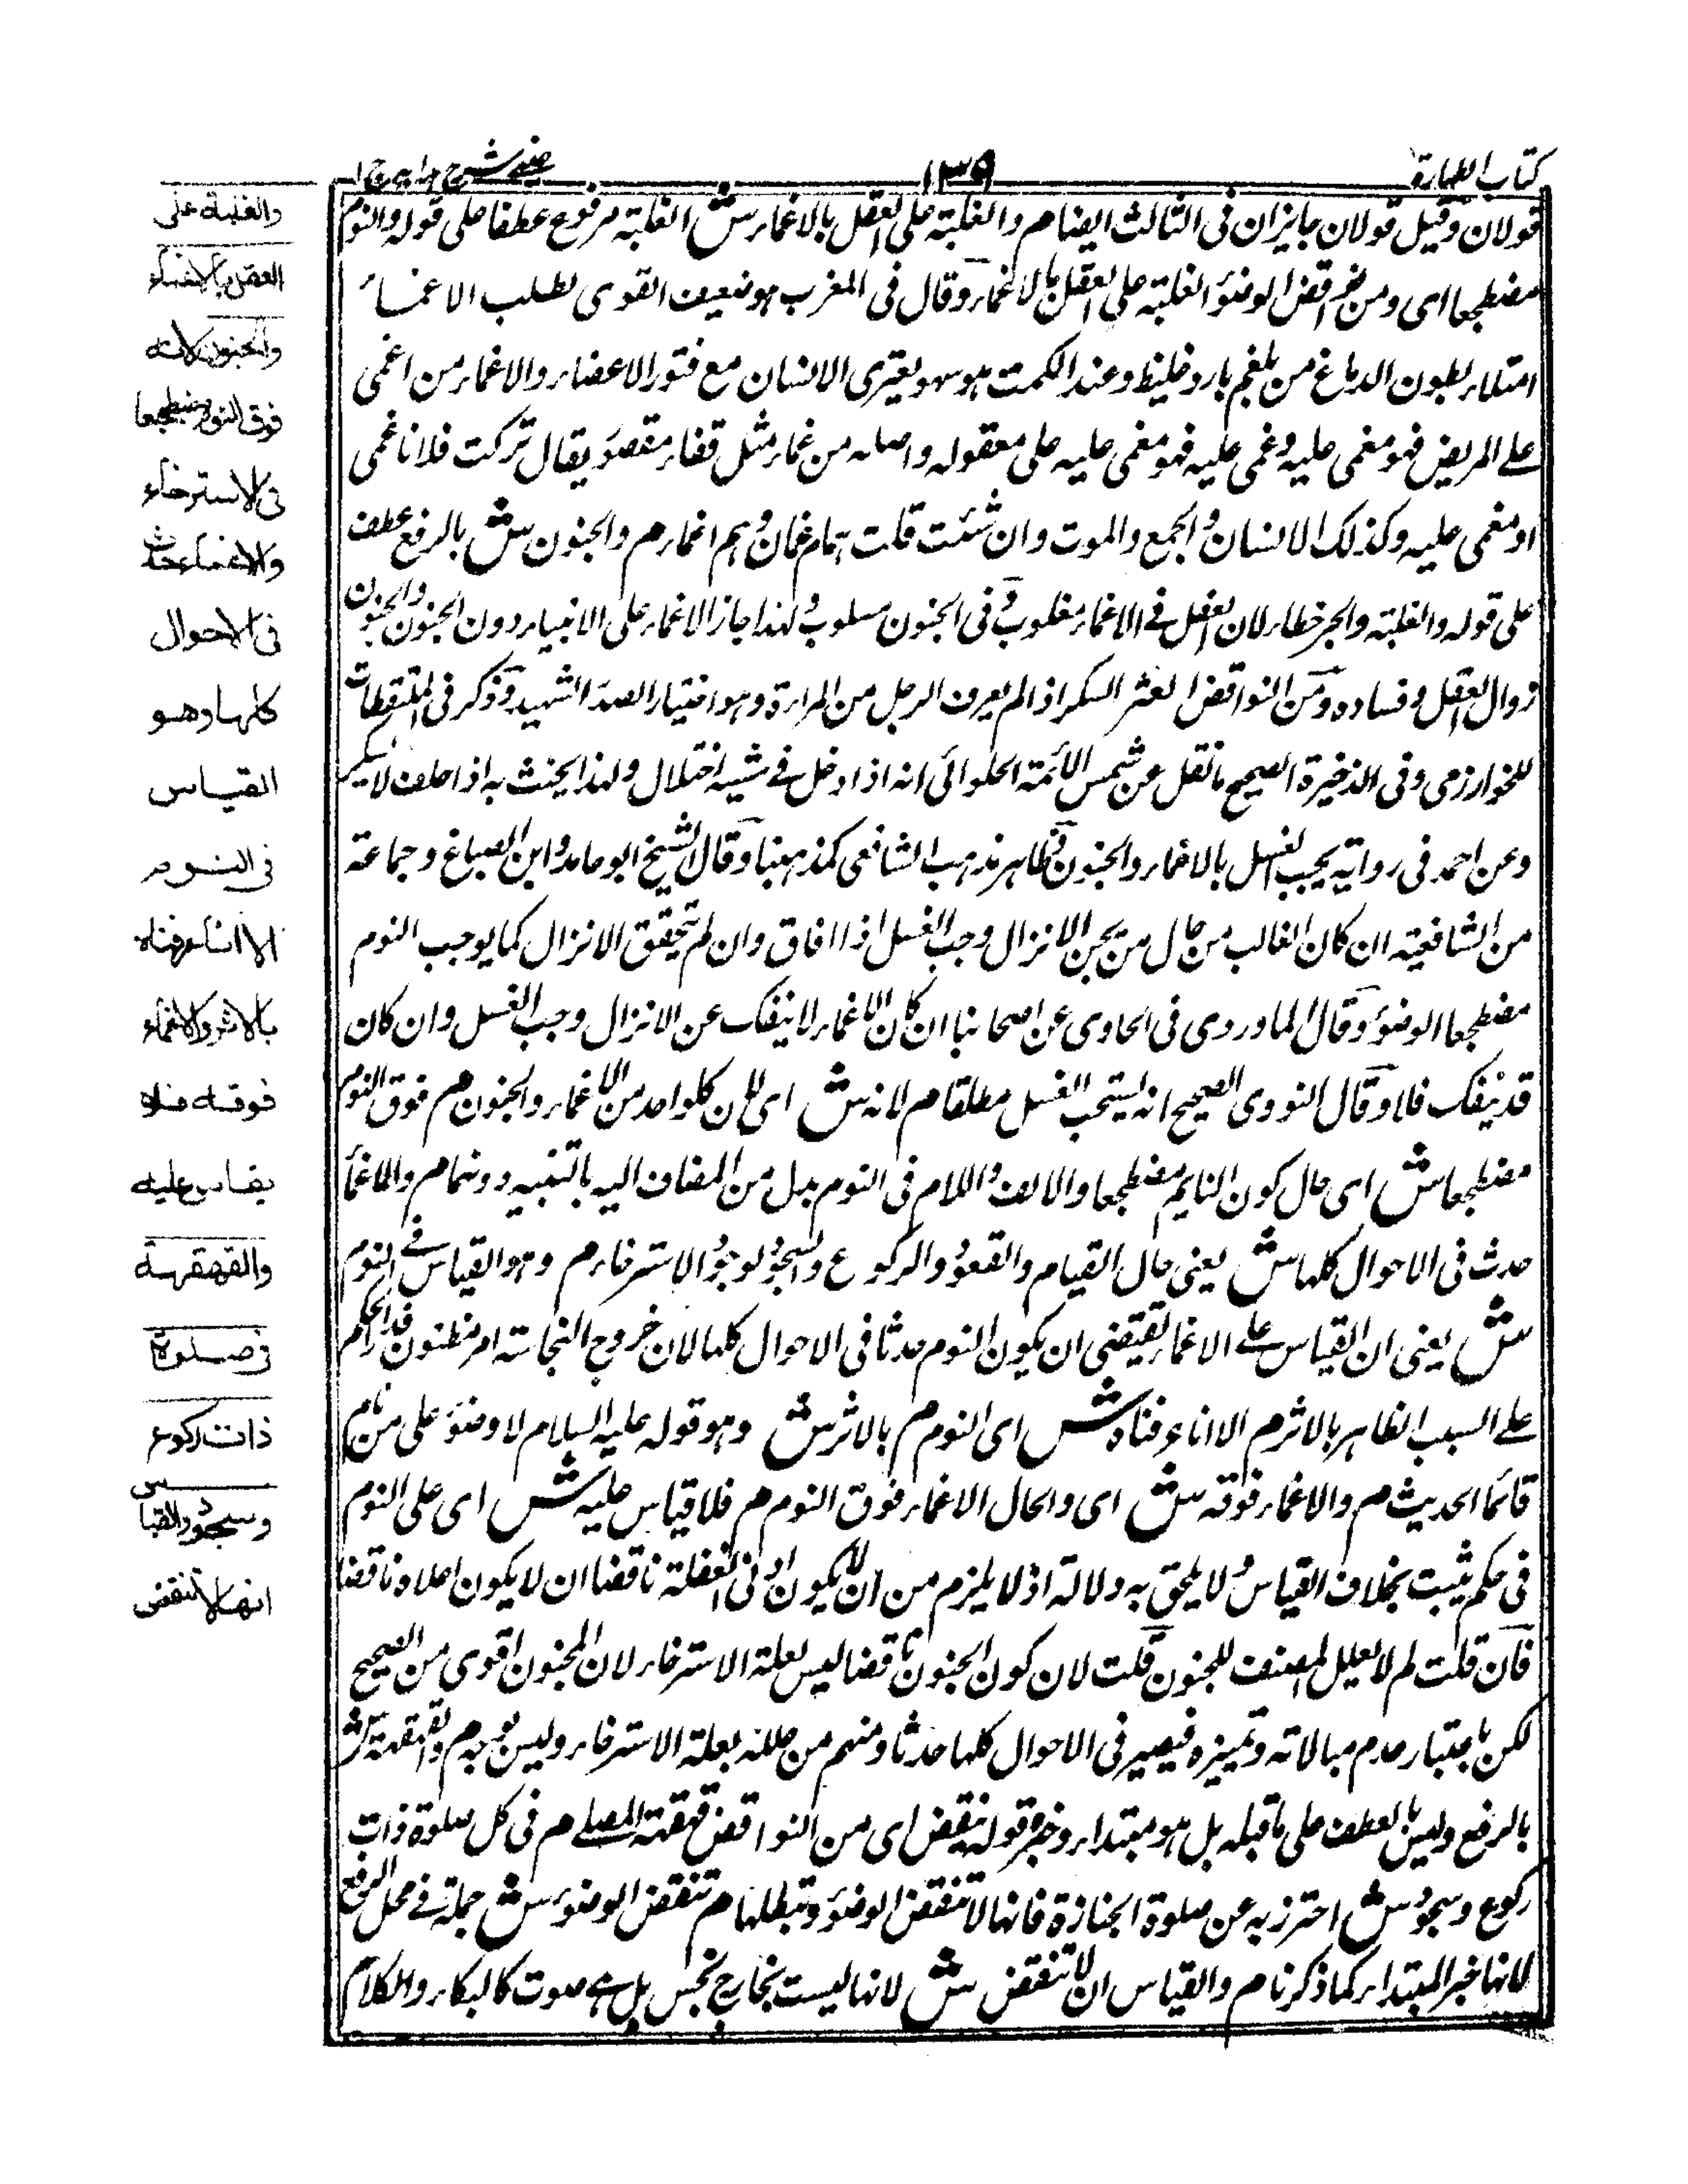 كتاب الطهارة
١٣٩
عينى شرح هدايه ج ١
قولان وقيل قولان جايزان فى الثالث ايضا م والغلبة على العقل بالاغماء ش الغلبة مرفوع عطفا على قوله والنوم
مضطجعا اى ومن نواقض الوضوء الغلبة على العقل بالاغماء وقال فى المغرب هو ضعيف القوى لطلب الاغماء
امتلاء بطون الدماغ من بلغم بارد غليظ وعند الحكمت هو سهو يعترى الانسان مع فتور الاعضاء والاغماء من اغمى
على المريض فهو مغمى عليه وغمى عليه فهو مغمى عليه على معقوله واصله من غماء مثل قفاء مقصور يقال تركت فلانا غمى
او مغمى عليه وكذلك الانسان والجمع والموت وان شئت قلت هما غمان وهم اغماء م والجنون ش بالرفع عطف
على قوله والغلبة والجر خطاء لان العقل فى الاغماء مغلوب وفى الجنون مسلوب ولهذا جاز الاغماء على الانبياء دون الجنون والجنون
زوال العقل وفساده ومن النواقض السكر اذا لم يعرف الرجل من المراة وهو اختيار الصدر الشهيد وذكر فى الملتقطات
للخوارزمى وفى الذخيرة الصحيح ما نقل عن شمس الائمة الحلوائى انه اذا دخل فى مشيه اختلال ولهذا يحنث به اذا حلف لا يسكر
وعن احمد فى رواية يجب الغسل بالاغماء والجنون وظاهر مذهب الشافعى كمذهبنا وقال الشيخ ابو حامد وابن الصباغ وجماعة
من الشافعية ان كان الغالب من حال من يجن الانزال وجب الغسل اذا افاق وان لم يتحقق الانزال كما يوجب النوم
مضطجعا الوضوء وقال الماوردى فى الحاوى عن اصحابنا ان كان الاغماء لا ينفك عن الانزال وجب الغسل وان كان
قد ينفك فلا وقال النووى الصحيح انه يستحب الغسل مطلقا م لانه ش اى لان كلواحد من الاغماء والجنون م فوق النوم
مضطجعا ش اى حال كون النايم مضطجعا والالف واللام فى النوم بدل من المضاف اليه بالتنبيه دونهما م والاغماء
حدث فى الاحوال كلها ش يعنى حال القيام والقعود والركوع والسجود لوجود الاسترخاء م وهو القياس فى النوم
ش يعنى ان القياس على الاغماء يقتضى ان يكون النوم حدثا فى الاحوال كلها لان خروج النجاسة امر مظنون فدار الحكم
على السبب الظاهر بالاثر م الا انا عرفناه ش اى النوم م بالاثر ش وهو قوله عليه السلام لا وضوء على من نام
قائما الحديث م والاغماء فوقه ش اى والحال الاغماء فوق النوم م فلا قياس عليه ش اى على النوم
فى حكم يثبت بخلاف القياس ولا يلحق به دلالة اذ لا يلزم من ان لا يكون ادنى الغفلة ناقضا ان لا يكون اعلاه ناقضا
فان قلت لم لا يعلل المصنف للجنون قلت لان كون الجنون ناقضا ليس لعلة الاسترخاء لان المجنون اقوى من الصحيح
لكن باعتبار عدم مبالاته وتميزه فيصير فى الاحوال كلها حدثا ومنهم من علله بعلة الاسترخاء وليس بوجه م والقهقهة ش
بالرفع وليس بالعطف على ما قبله بل هو مبتداء وخبره قوله ينقض اى من النواقض قهقهة المصلى م فى كل صلوة ذات
ركوع وسجود ش احترز به عن صلوة الجنازة فانها لا تنقض الوضوء وتبطلها م تنقض الوضوء ش جملة فى محل الرفع
لانها خبر المبتداء كما ذكرنا م والقياس ان لا تنقض ش لانها ليست بخارج نجس بل هى صوت كالبكاء والكلام
والغلبة على
العقل بالاغماء
والجنون لانه
فوق النوم مضطجعا
فى الاسترخاء
والاغماء حدث
فى الاحوال
كلها وهو
القياس
فى النوم
الا انا عرفناه
بالاثر والاغماء
فوقه فلا
يقاس عليه
والقهقهة
فى صلوة
ذات ركوع
وسجود والقياس
انها لا تنقض